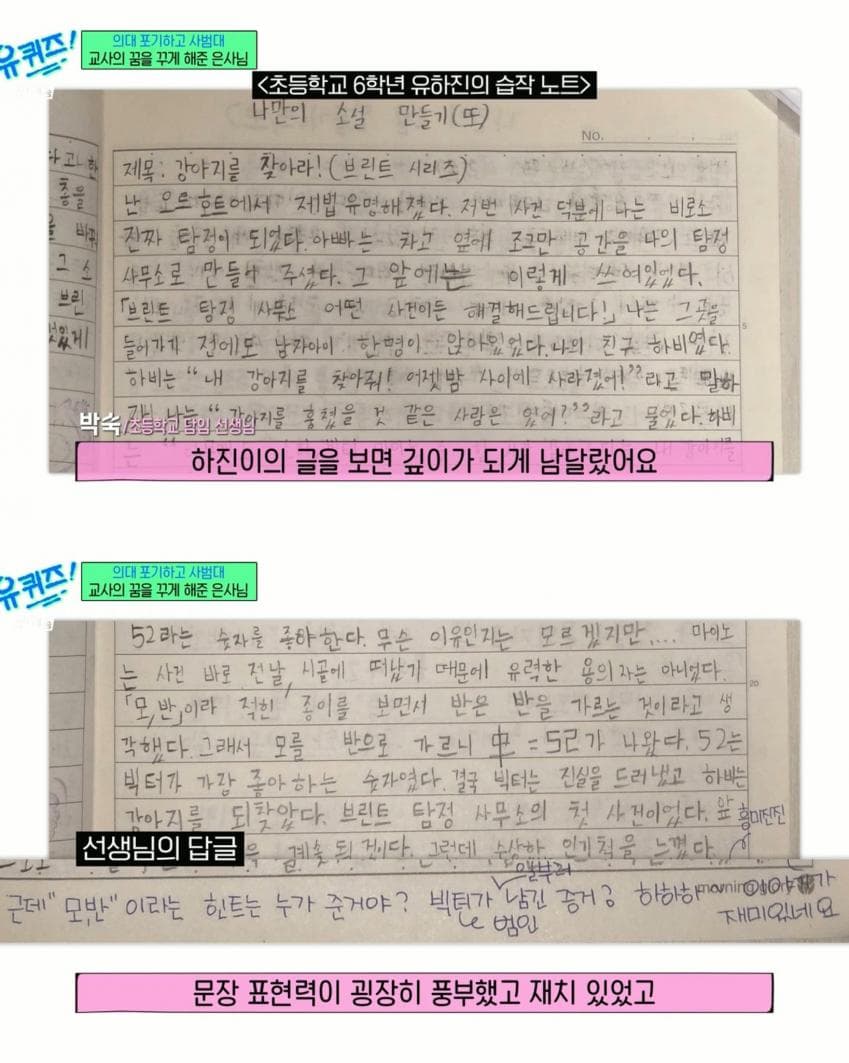 유퀴즈!
의대 포기하고 사범대
교사의 꿈을 꾸게 해준 은사님
<초등학교 6학년 유하진의 습작 노트>
나만의 소설 만들기(또)
No.
제목: 강아지를 찾아라! (브린트 시리즈)
난 오르호트에서 제법 유명해졌다. 저번 사건 덕분에 나는 비로소
진짜 탐정이 되었다. 아빠는 차고 옆에 조그만 공간을 나의 탐정
사무소로 만들어 주셨다. 그 앞에는 이렇게 쓰여있었다.
「브린트 탐정 사무소 어떤 사건이든 해결해드립니다!」 나는 그곳을
들어가기 전에도 남자아이 한명이 앉아있었다. 나의 친구 하비였다.
하비는 “내 강아지를 찾아줘! 어젯밤 사이에 사라졌어!”라고 말하
자 나는 “강아지를 훔쳤을 것 같은 사람은 있어?”라고 물었다. 하비
총을
그 소
브린
5
박숙/초등학교 담임 선생님
하진이의 글을 보면 깊이가 되게 남달랐어요
유퀴즈!
의대 포기하고 사범대
교사의 꿈을 꾸게 해준 은사님
52라는 숫자를 좋아한다. 무슨 이유인지는 모르겠지만.... 마이노
는 사건 바로 전날, 시골에 떠났기 때문에 유력한 용의자는 아니었다.
「모, 반」이라 적힌 종이를 보면서 반은 반을 가르는 것이라고 생
20
각했다. 그래서 모를 반으로 가르니 = 52가 나왔다. 52는
빅터가 가장 좋아하는 숫자였다. 결국 빅터는 진실을 드러냈고 하비는
강아지를 되찾았다. 브린트 탐정 사무소의 첫 사건이었다. 앞
흥미진진
선생님의 답글
된 것이다. 그런데, 수상한 인기척을 느꼈다.
일부러
근데 "모,반" 이라는 힌트는 누가 준거야? 빅터가 남긴 증거? 하하하 이야기가
범인
재미있네요
morning glory
문장 표현력이 굉장히 풍부했고 재치 있었고